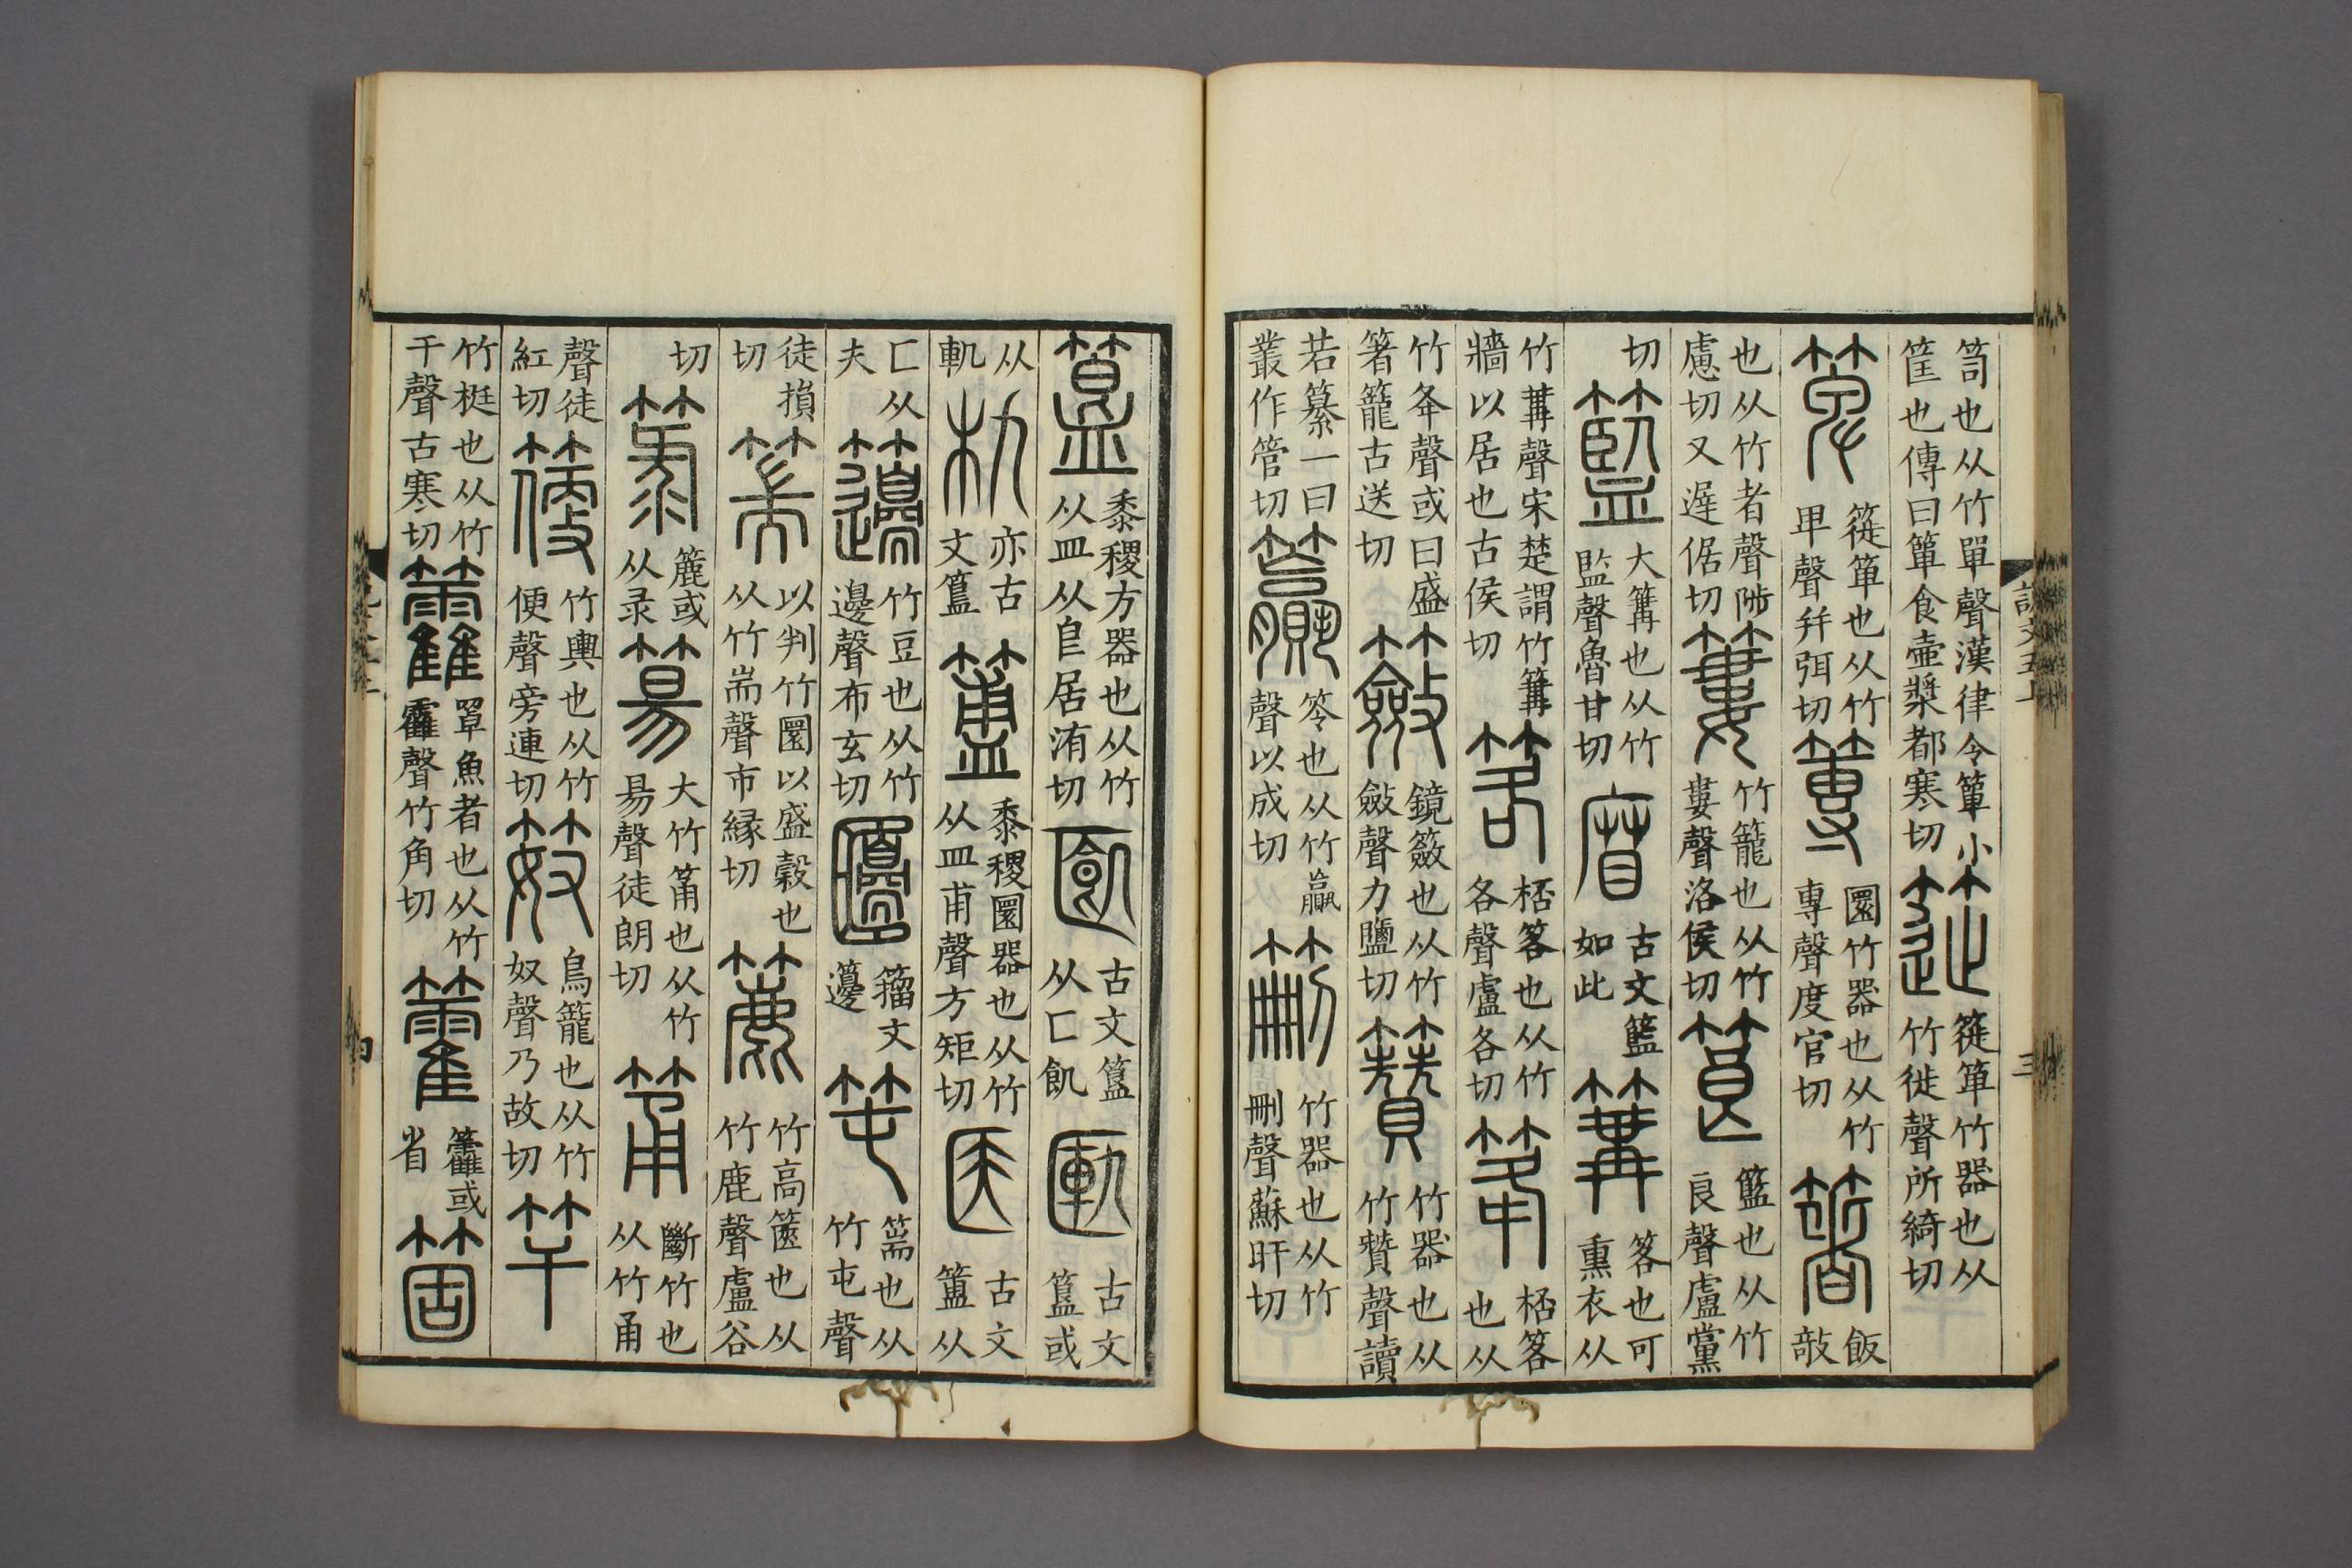 說文五上
三
笥也从竹單聲漢律令簞小筐也傳曰簞食壺漿都寒切簁簁箄竹器也从竹徙聲所綺切
箄簁箄也从竹卑聲并弭切篿圜竹器也从竹專聲度官切箸飯攲
也从竹者聲陟慮切又遲倨切簍竹籠也从竹婁聲洛侯切筤籃也从竹良聲盧黨
切籃大篝也从竹監聲魯甘切古文籃如此篝笿也可熏衣从
竹冓聲宋楚謂竹篝牆以居也古侯切笿桮笿也从竹各聲盧各切桮笿也从
竹夅聲或曰盛箸籠古送切籢鏡籢也从竹斂聲力鹽切籫竹器也从竹贊聲讀
若纂一曰叢作管切籯笭也从竹𣎆聲以成切竹器也从竹刪聲蘇旰切
簋黍稷方器也从竹从皿从皀居洧切古文簋从匚飢匭古文簋或
从軌朹亦古文簋簠黍稷圜器也从竹从皿甫聲方矩切古文簠从
匚从夫籩竹豆也从竹邊聲布玄切籀文籩篅也从竹屯聲
徒損切篅以判竹圜以盛穀也从竹耑聲市緣切簏竹高篋也从竹鹿聲盧谷
切箓簏或从录大竹筩也从竹昜聲徒朗切筩斷竹也从竹甬
聲徒紅切箯竹輿也从竹便聲旁連切笯鳥籠也从竹奴聲乃故切竿
竹梃也从竹干聲古寒切籱罩魚者也从竹靃聲竹角切籗籱或省箇